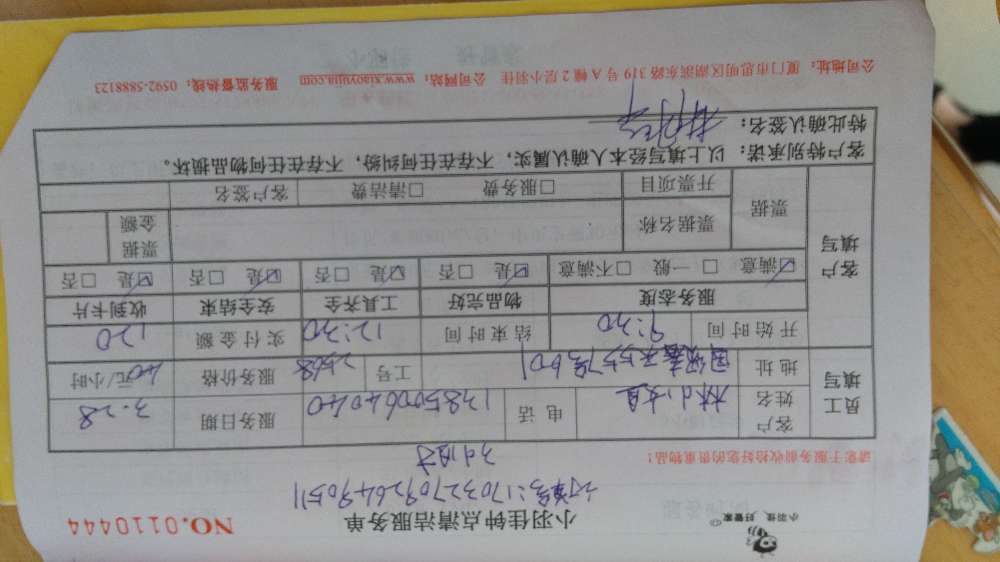 小羽佳，好管家
小羽佳钟点清洁服务单
NO.0110444
订单号:17032709264490511
3小时
请您于服务前收拾好您的贵重物品！
员工填写
客户姓名 林小姐 电话 13850064040 服务日期 3.28
地址 工号 2568 服务价格 40元/小时
开始时间 9:30 结束时间 12:30 实付金额 120
客户填写
服务态度 物品完好 工具齐全 安全结束 收到卡片
☑满意 □一般 □不满意 ☑是 □否 ☑是 □否 ☑是 □否 ☑是 □否
票据 票据名称 票据金额
开票项目 □服务费 □清洁费 客户签名
客户特别承诺：以上填写经本人确认属实，不存在任何纠纷，不存在任何物品损坏。
特此确认签名：
公司地址：厦门市思明区湖滨东路 319 号 A 幢 2 层小羽佳 公司网站：www.xiaoyujia.com 服务监督热线：0592-5888123